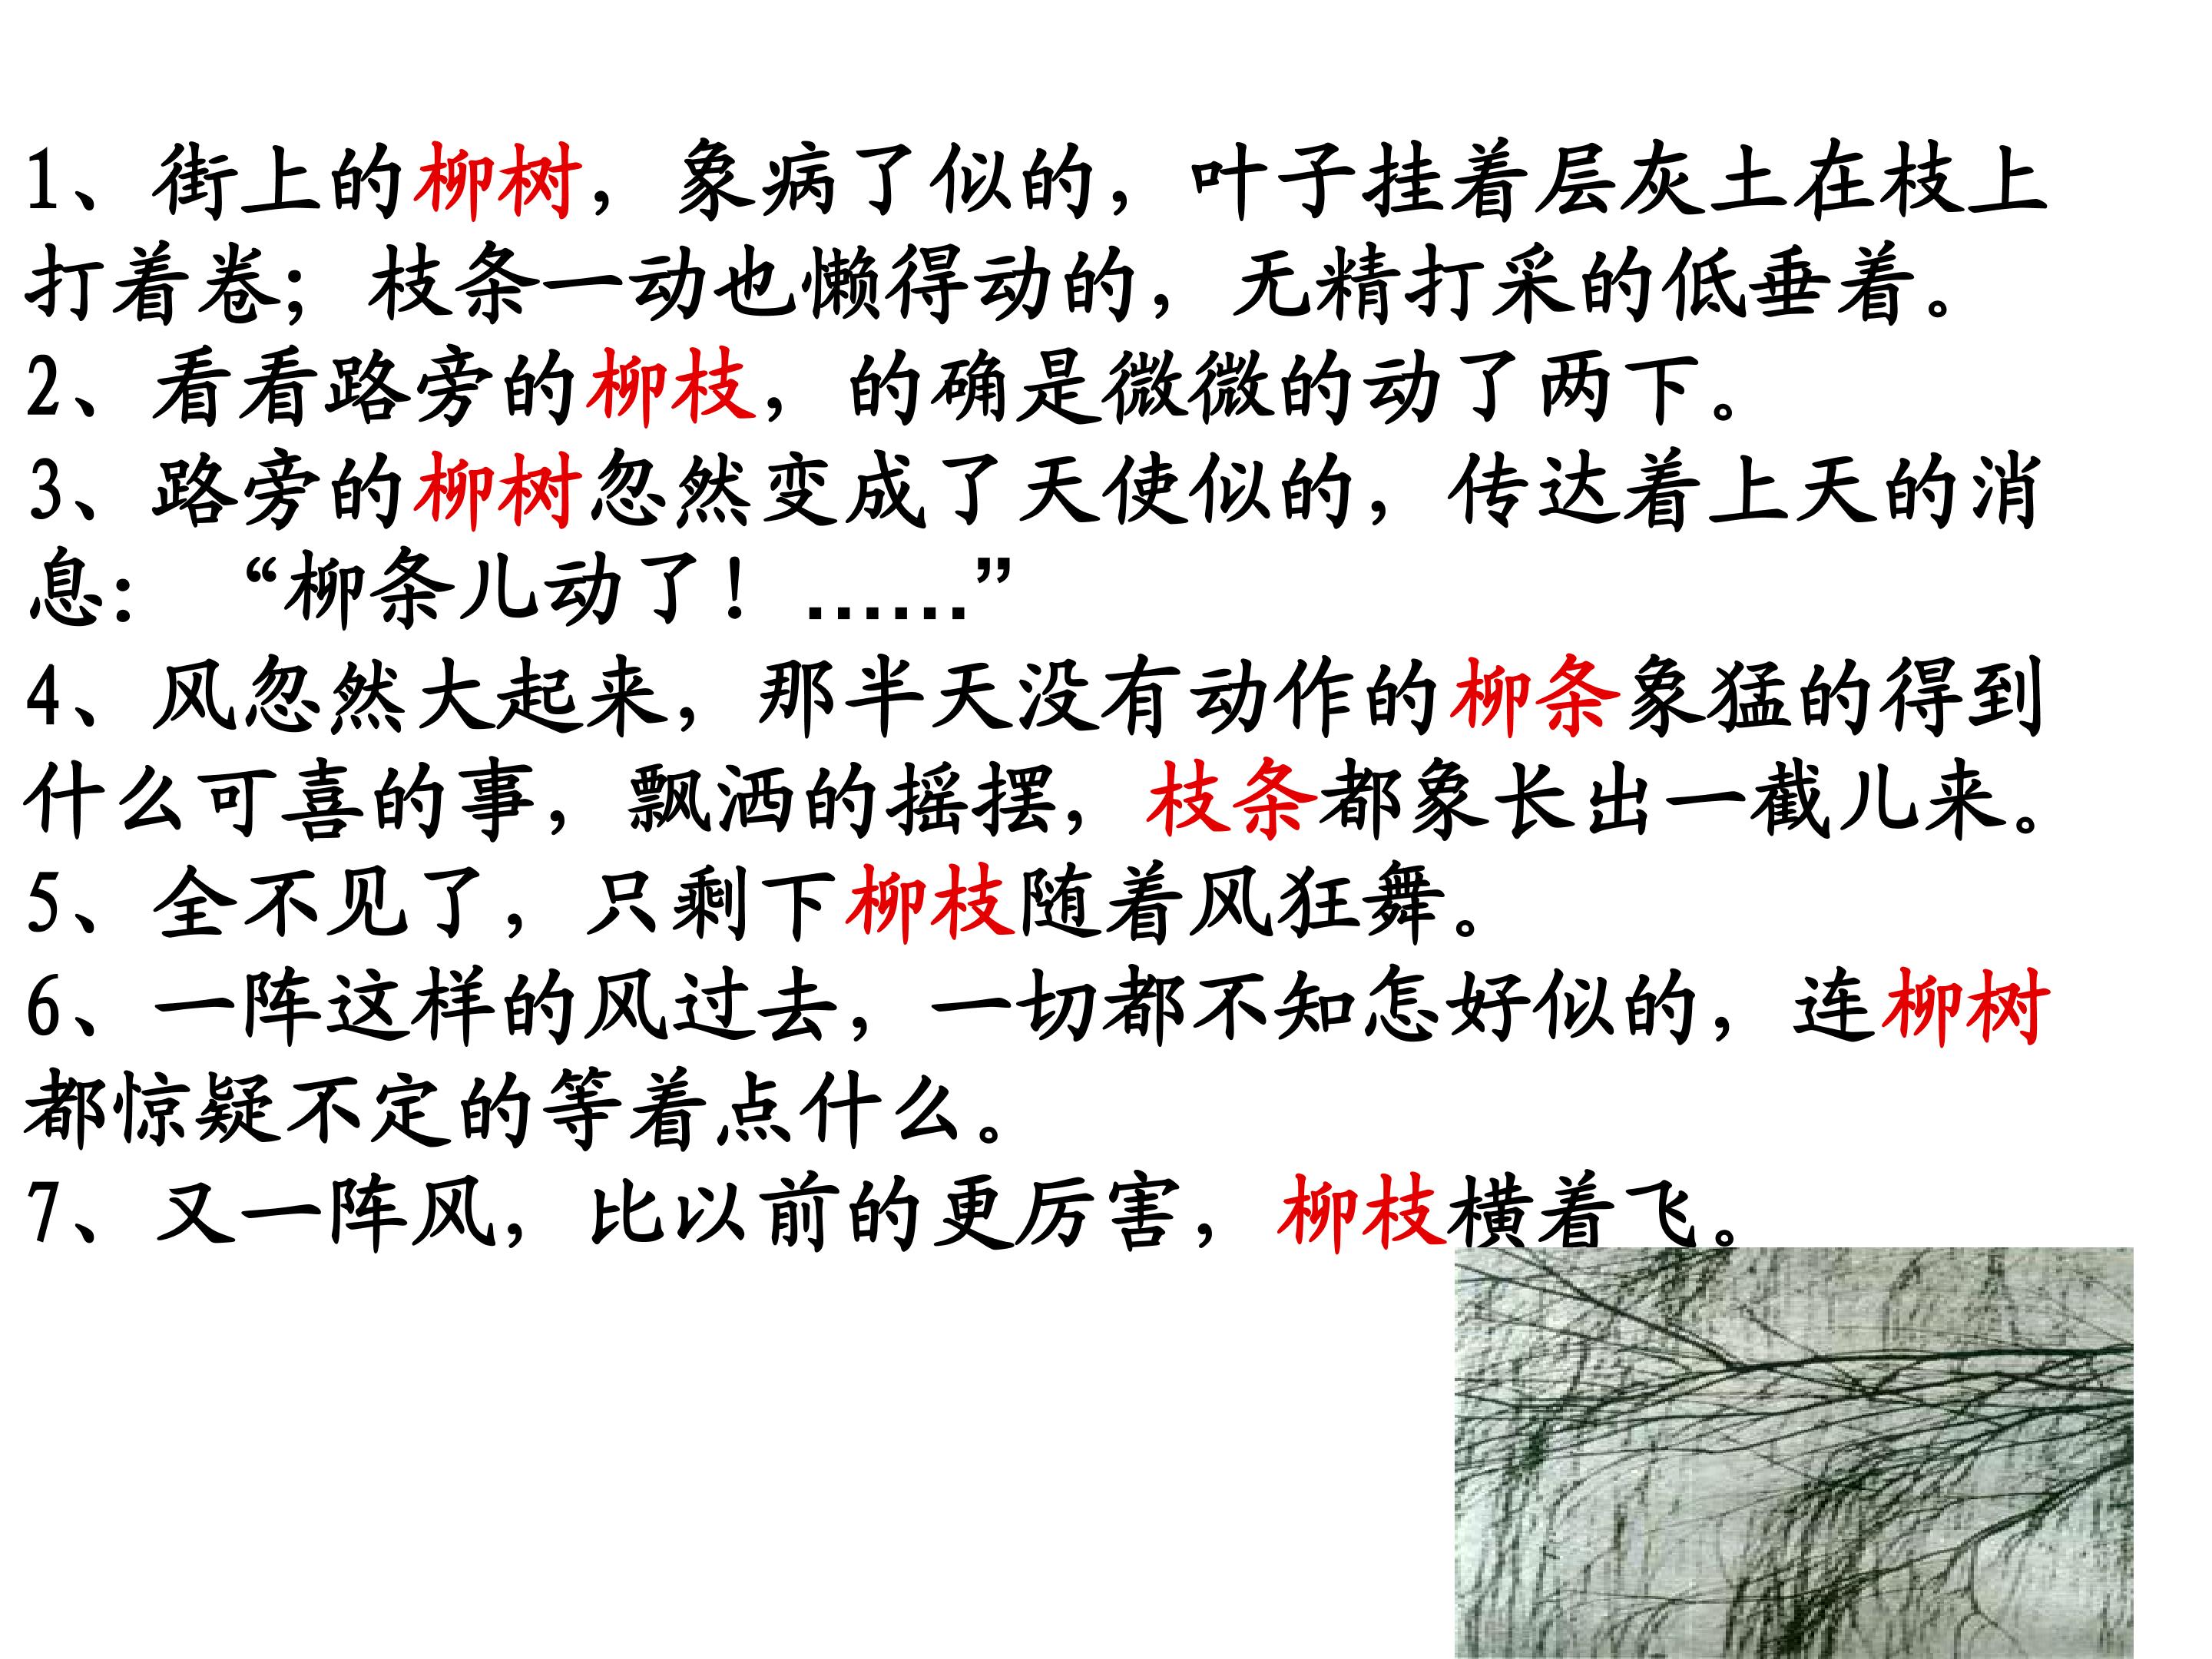 1、街上的柳树，象病了似的，叶子挂着层灰土在枝上
打着卷；枝条一动也懒得动的，无精打采的低垂着。
2、看看路旁的柳枝，的确是微微的动了两下。
3、路旁的柳树忽然变成了天使似的，传达着上天的消
息：“柳条儿动了！……”
4、风忽然大起来，那半天没有动作的柳条象猛的得到
什么可喜的事，飘洒的摇摆，枝条都象长出一截儿来。
5、全不见了，只剩下柳枝随着风狂舞。
6、一阵这样的风过去，一切都不知怎好似的，连柳树
都惊疑不定的等着点什么。
7、又一阵风，比以前的更厉害，柳枝横着飞。